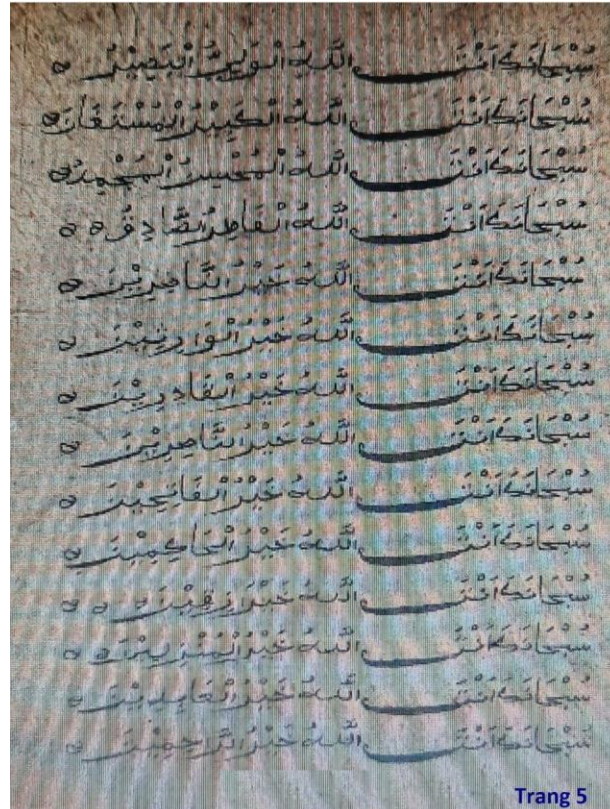 سُبْحَانَكَ اَنْتَ اللهُ الْوَلِيُّ الْبَصِيْرُ ه
سُبْحَانَكَ اَنْتَ اللهُ الْكَبِيْرُ الْمُسْتَعَانُ ه
سُبْحَانَكَ اَنْتَ اللهُ
سُبْحَانَكَ اَنْتَ اللهُ الْفَاطِرُ الصَّادِقُ ه ه
سُبْحَانَكَ اَنْتَ اللهُ خَيْرُ النَّاصِرِيْنَ ه
سُبْحَانَكَ اَنْتَ اللهُ خَيْرُ الْوَارِثِيْنَ ه
سُبْحَانَكَ اَنْتَ اللهُ خَيْرُ الْقَادِرِيْنَ ه
سُبْحَانَكَ اَنْتَ اللهُ خَيْرُ النَّاصِرِيْنَ ه
سُبْحَانَكَ اَنْتَ اللهُ خَيْرُ الْفَاتِحِيْنَ ه
سُبْحَانَكَ اَنْتَ اللهُ خَيْرُ الْحَاكِمِيْنَ ه
سُبْحَانَكَ اَنْتَ اللهُ خَيْرُ ه ه
سُبْحَانَكَ اَنْتَ اللهُ خَيْرُ الْمُنْزِلِيْنَ ه
سُبْحَانَكَ اَنْتَ اللهُ خَيْرُ الْعَابِدِيْنَ ه
سُبْحَانَكَ اَنْتَ اللهُ خَيْرُ الرَّاحِمِيْنَ ه
Trang 5